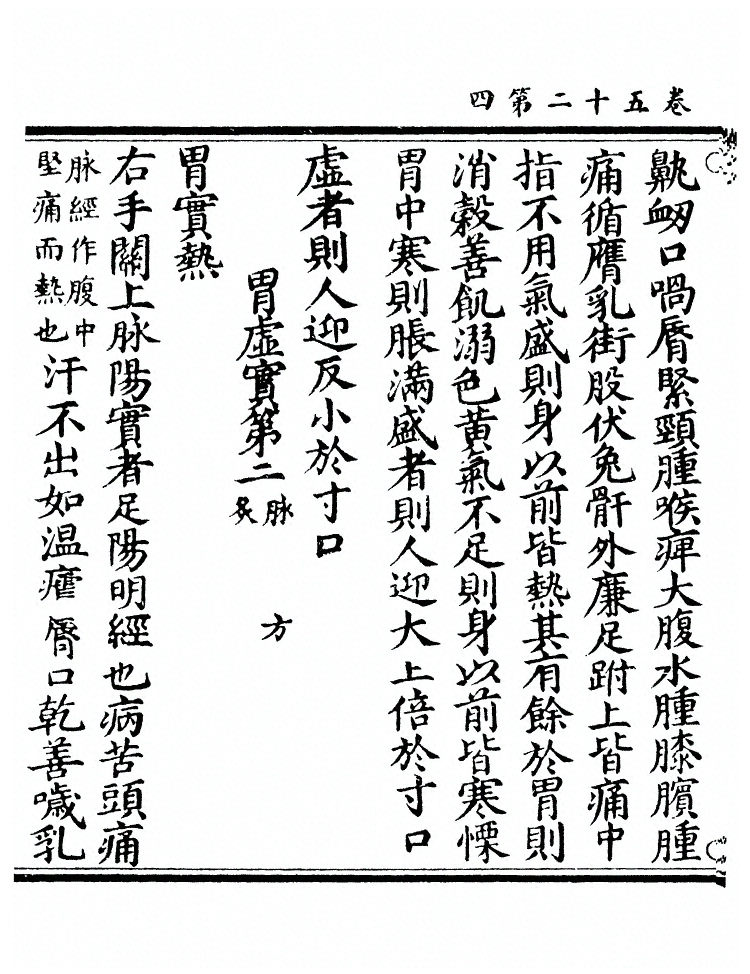 卷五十二第四
鼽衂口喎脣緊頸腫喉痺大腹水腫膝臏腫
痛循膺乳街股伏兔骭外廉足跗上皆痛中
指不用氣盛則身以前皆熱其有餘於胃則
消穀善飢溺色黄氣不足則身以前皆寒慄
胃中寒則脹滿盛者則人迎大上倍於寸口
虛者則人迎反小於寸口
胃虛實第二 脉炙 方
胃實熱
右手關上脉陽實者足陽明經也病苦頭痛
脉經作腹中
堅痛而熱也
汗不出如温瘧脣口乾善噦乳